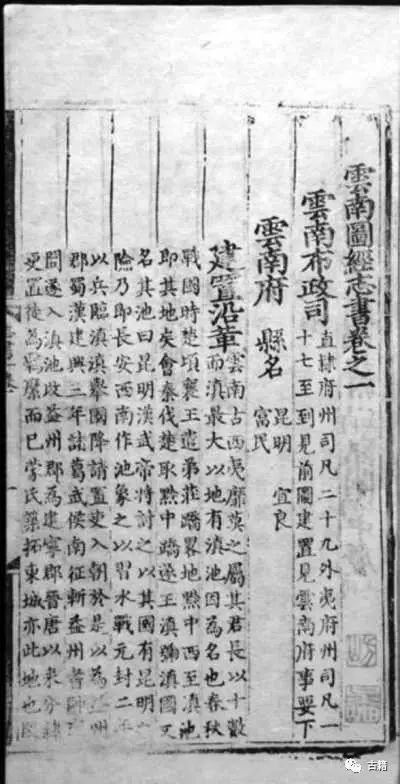 雲南圖經志書卷之一
雲南布政司 直隸府州司凡二十九外夷府州司凡一
十七至到見前圖建置見雲南府事要下
雲南府 縣名 昆明 宜良
富民
建置沿革 雲南古西夷靡莫之屬其君長以十數
而滇最大以地有滇池因為名也春秋
戰國時楚頃襄王遣弟莊蹻畧地黔中西至滇池
即其地矣會秦伐楚取黔中蹻遂王滇號滇國又
名其池曰昆明漢武帝將討之以其國有昆明
險乃即長安西南作池象之以習水戰元封二年
以兵臨滇滇舉國降請置吏入朝於是以為益州
郡蜀漢建興三年諸葛武侯南征斬益州耆帥
闓遂入滇池改益州郡為建寧郡晉唐以來分隸
更置徒為羈縻而已蒙氏築拓東城亦此地也
古籍